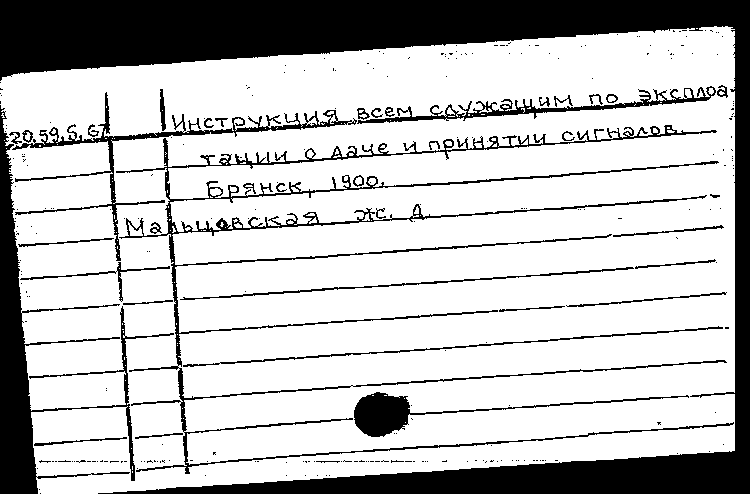 20.59.5.67 Инструкция всем служащим по эксплоа-
тации о даче и принятии сигналов.
Брянск, 1900.
Мальцовская ж. д.